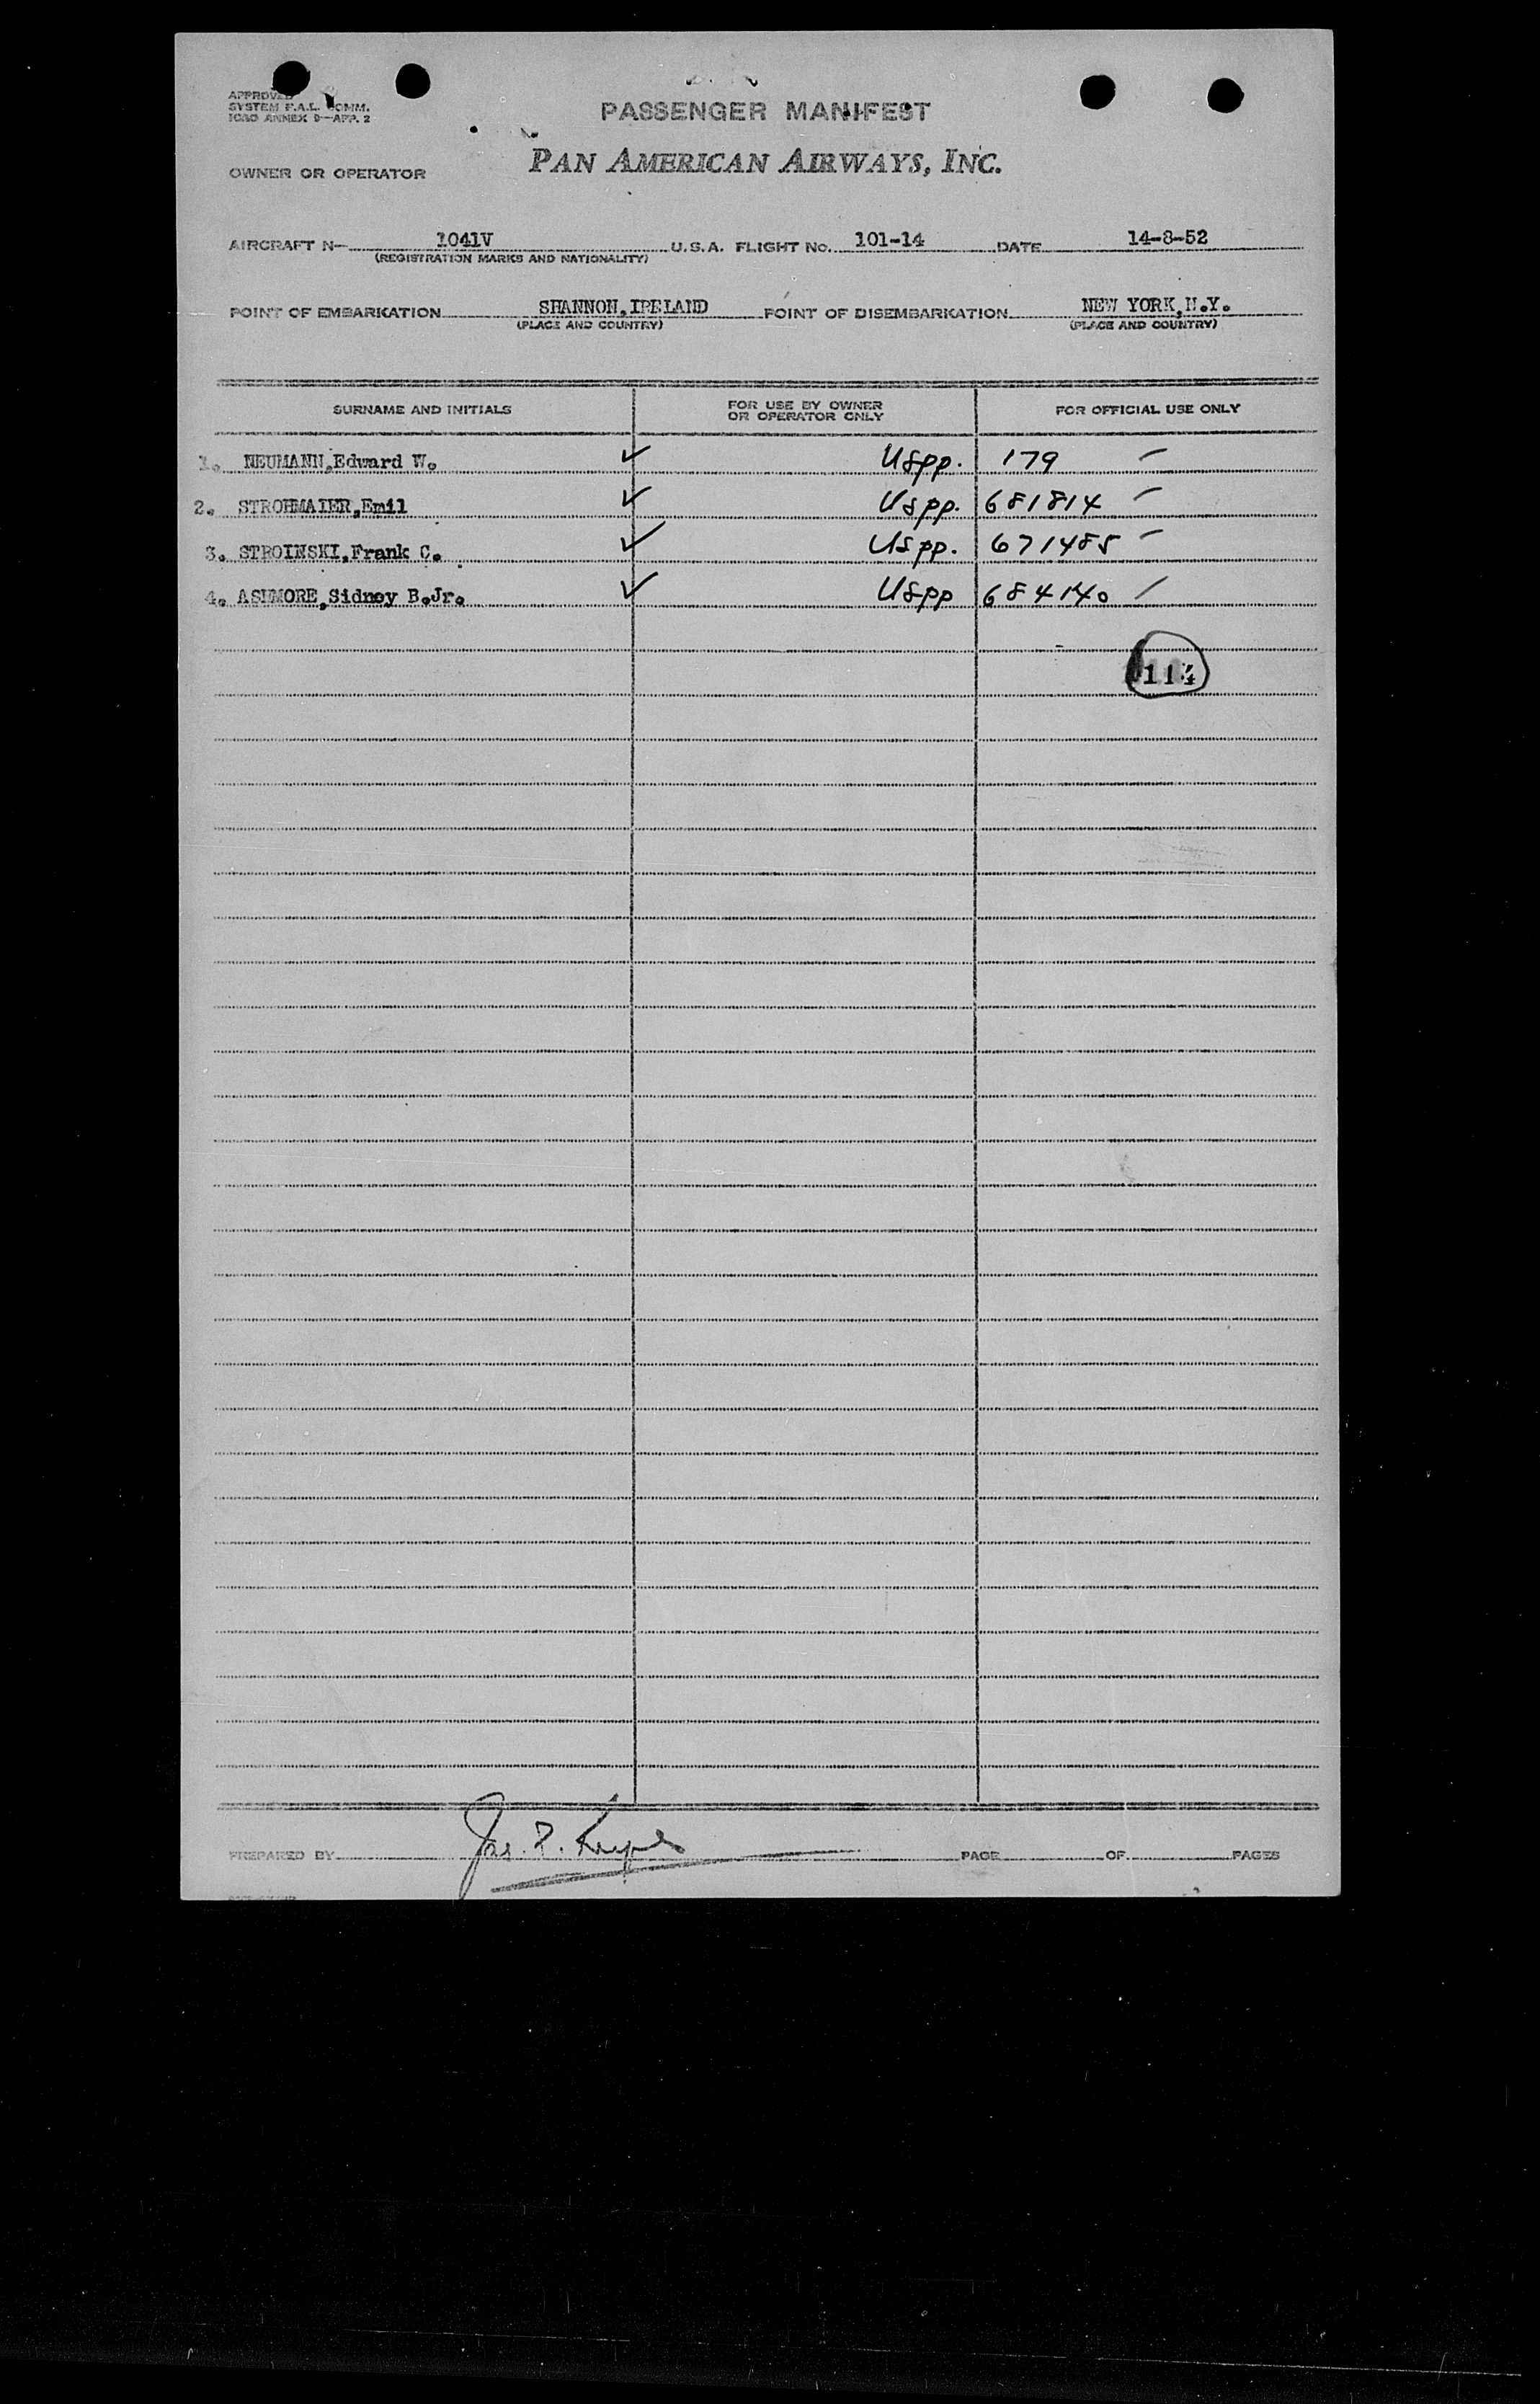 APPROVED
SYSTEM F.A.L. COMM.
ICAO ANNEX 9—APP. 2
PASSENGER MANIFEST
OWNER OR OPERATOR PAN AMERICAN AIRWAYS, INC.
AIRCRAFT N— 1041V U.S.A. FLIGHT No. 101-14 DATE 14-8-52
(REGISTRATION MARKS AND NATIONALITY)
POINT OF EMBARKATION SHANNON, IRELAND POINT OF DISEMBARKATION NEW YORK, N.Y.
(PLACE AND COUNTRY) (PLACE AND COUNTRY)
SURNAME AND INITIALS FOR USE BY OWNER OR OPERATOR ONLY FOR OFFICIAL USE ONLY
1. NEUMANN, Edward W. ✓ USpp. 179 –
2. STROHMAIER, Emil ✓ USpp. 681814 –
3. STROINSKI, Frank C. ✓ USpp. 671485 –
4. ASHMORE, Sidney B. Jr. ✓ USpp 684140 /
114
PREPARED BY Jas. P. PAGE OF PAGES